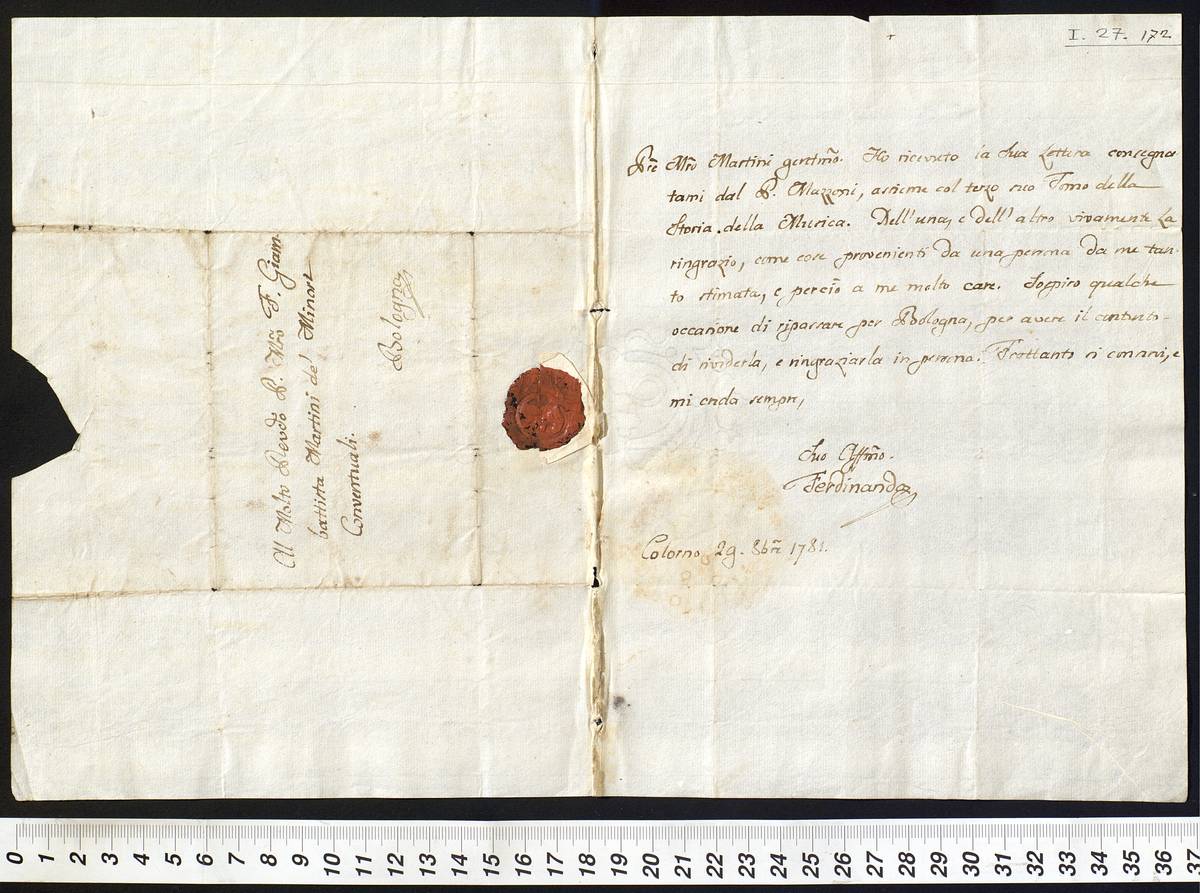 Al Molto Revdo P. Mro F. Giam-
battista Martini de' Minori
Conventuali.
Bologna
I. 27. 172
Pre Mro Martini gentmo. Ho ricevuto la sua Lettera consegna-
tami dal P. Mazzoni, assieme col terzo suo Tomo della
Storia della Musica. Dell'una, e dell'altro vivamente La
ringrazio, come cose provenienti da una persona da me tan-
to stimata, e perciò a me molto care. Sospiro qualche
occasione di ripassare per Bologna, per avere il contento
di rivederla, e ringraziarla in persona. Frattanto si conservi, e
mi creda sempre,
Suo Affmo.
Ferdinando
Colorno 29. 8bre 1781.
0 1 2 3 4 5 6 7 8 9 10 11 12 13 14 15 16 17 18 19 20 21 22 23 24 25 26 27 28 29 30 31 32 33 34 35 36 37